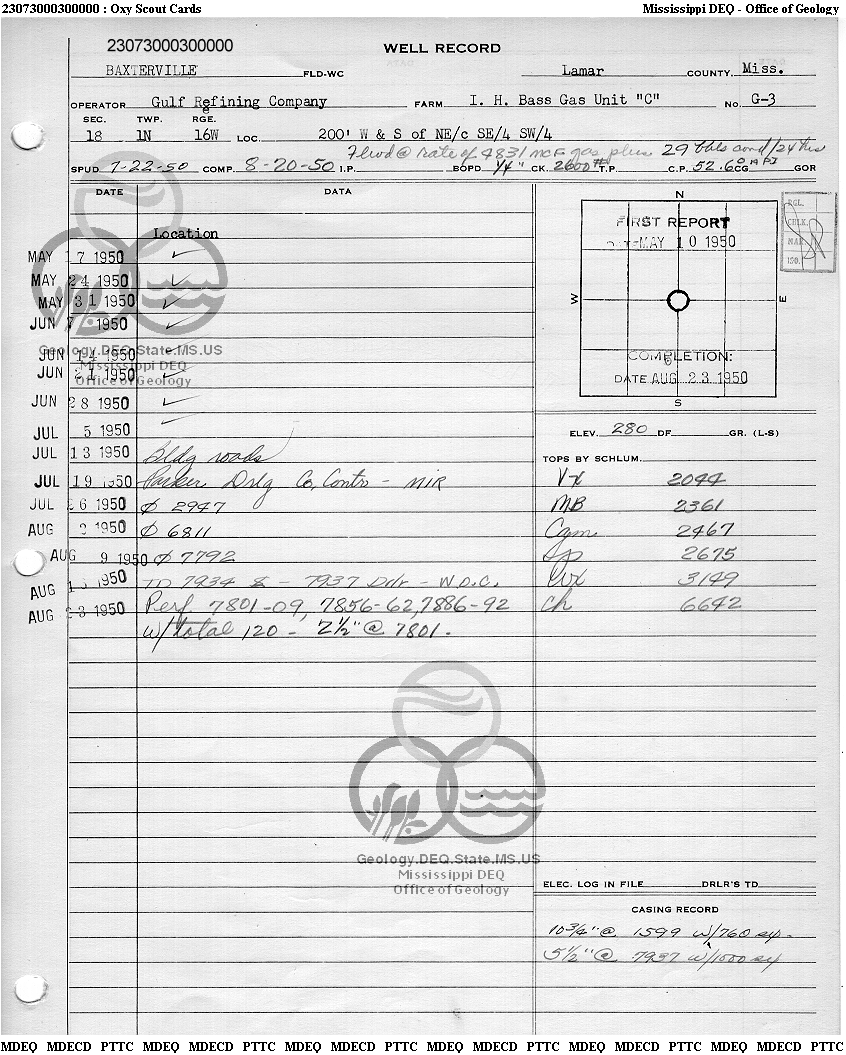 23073000300000 : Oxy Scout Cards Mississippi DEQ - Office of Geology
23073000300000
WELL RECORD
BAXTERVILLE FLD-WC Lamar COUNTY, Miss.
OPERATOR Gulf Refining Company FARM I. H. Bass Gas Unit "C" NO. G-3
SEC. TWP. RGE.
18 1N 16W LOC. 200' W & S of NE/c SE/4 SW/4
Flwd @ rate of 4831 MCF gas plus 29 bbls cond/24 hrs
SPUD 7-22-50 COMP. 8-20-50 I.P. BOPD 1/4" CK. 2600# T.P. C.P. 52.6° API CG GOR
DATE DATA
N
FIRST REPORT
DATE MAY 10 1950
RGL.
CHLK.
MAP
ISO.
Location
MAY 17 1950 ✓
MAY 24 1950 ✓
MAY 31 1950 ✓
W E
JUN 7 1950 ✓
Geology.DEQ.State.MS.US
Mississippi DEQ
Office of Geology
JUN 14 1950 ✓
JUN 21 1950 ✓
COMPLETION:
DATE AUG 23 1950
S
JUN 28 1950 ✓
JUL 5 1950 ✓
ELEV. 280 DF. GR. (L-S)
JUL 13 1950 Bldg roads
TOPS BY SCHLUM.
JUL 19 1950 Parker Drlg Co, Contr - MIR
Vx 2044
JUL 26 1950 Ø 2947
MB 2361
AUG 2 1950 Ø 6811
Cgm 2467
AUG 9 1950 Ø 7792
2675
AUG 1 1950 TD 7934 S - 7937 Ddr - W.O.C.
Wx 3149
AUG 23 1950 Perf 7801-09, 7856-62, 7886-92
Ch 6642
w/total 120 - 2 1/2" @ 7801.
Geology.DEQ.State.MS.US
Mississippi DEQ
Office of Geology
ELEC. LOG IN FILE DRLR'S TD
CASING RECORD
10 3/4" @ 1599 w/760 sx.
5 1/2" @ 7937 w/1000 sx
MDEQ MDECD PTTC MDEQ MDECD PTTC MDEQ MDECD PTTC MDEQ MDECD PTTC MDEQ MDECD PTTC MDEQ MDECD PTTC